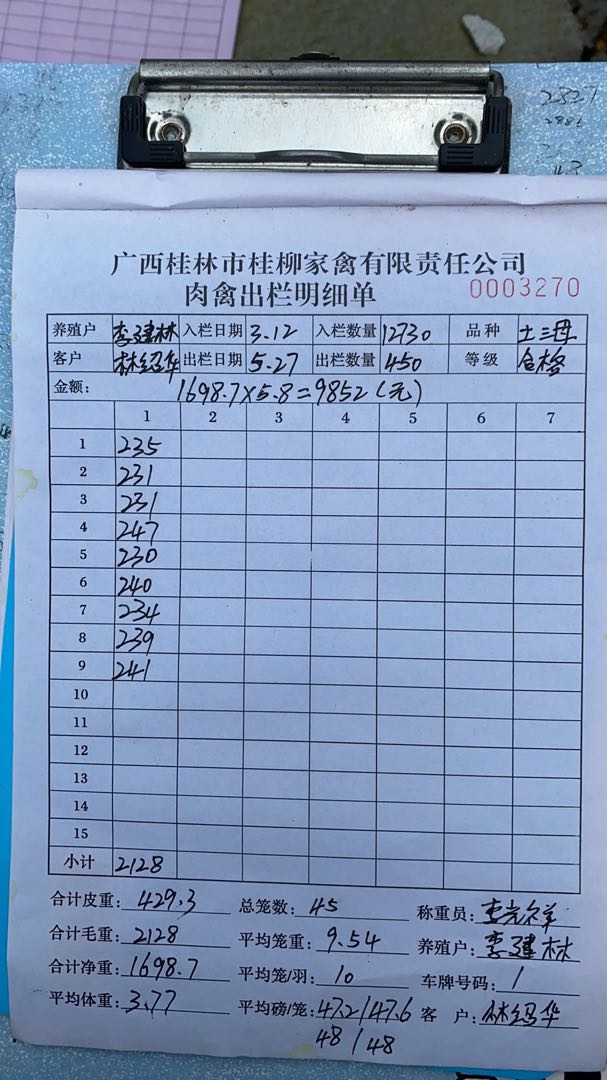 2827
2881
广西桂林市桂柳家禽有限责任公司
肉禽出栏明细单 0003270
养殖户 李建林 入栏日期 3.12 入栏数量 12730 品种 土三母
客户 林绍华 出栏日期 5.27 出栏数量 450 等级 合格
金额: 1698.7×5.8=9852(元)
1 2 3 4 5 6 7
1 235
2 231
3 231
4 247
5 230
6 240
7 234
8 239
9 241
10
11
12
13
14
15
小计 2128
合计皮重: 429.3 总笼数: 45 称重员:
合计毛重: 2128 平均笼重: 9.54 养殖户: 李建林
合计净重: 1698.7 平均笼/羽: 10 车牌号码: /
平均体重: 3.77 平均磅/笼: 47.2/47.6 客户: 林绍华
48/48